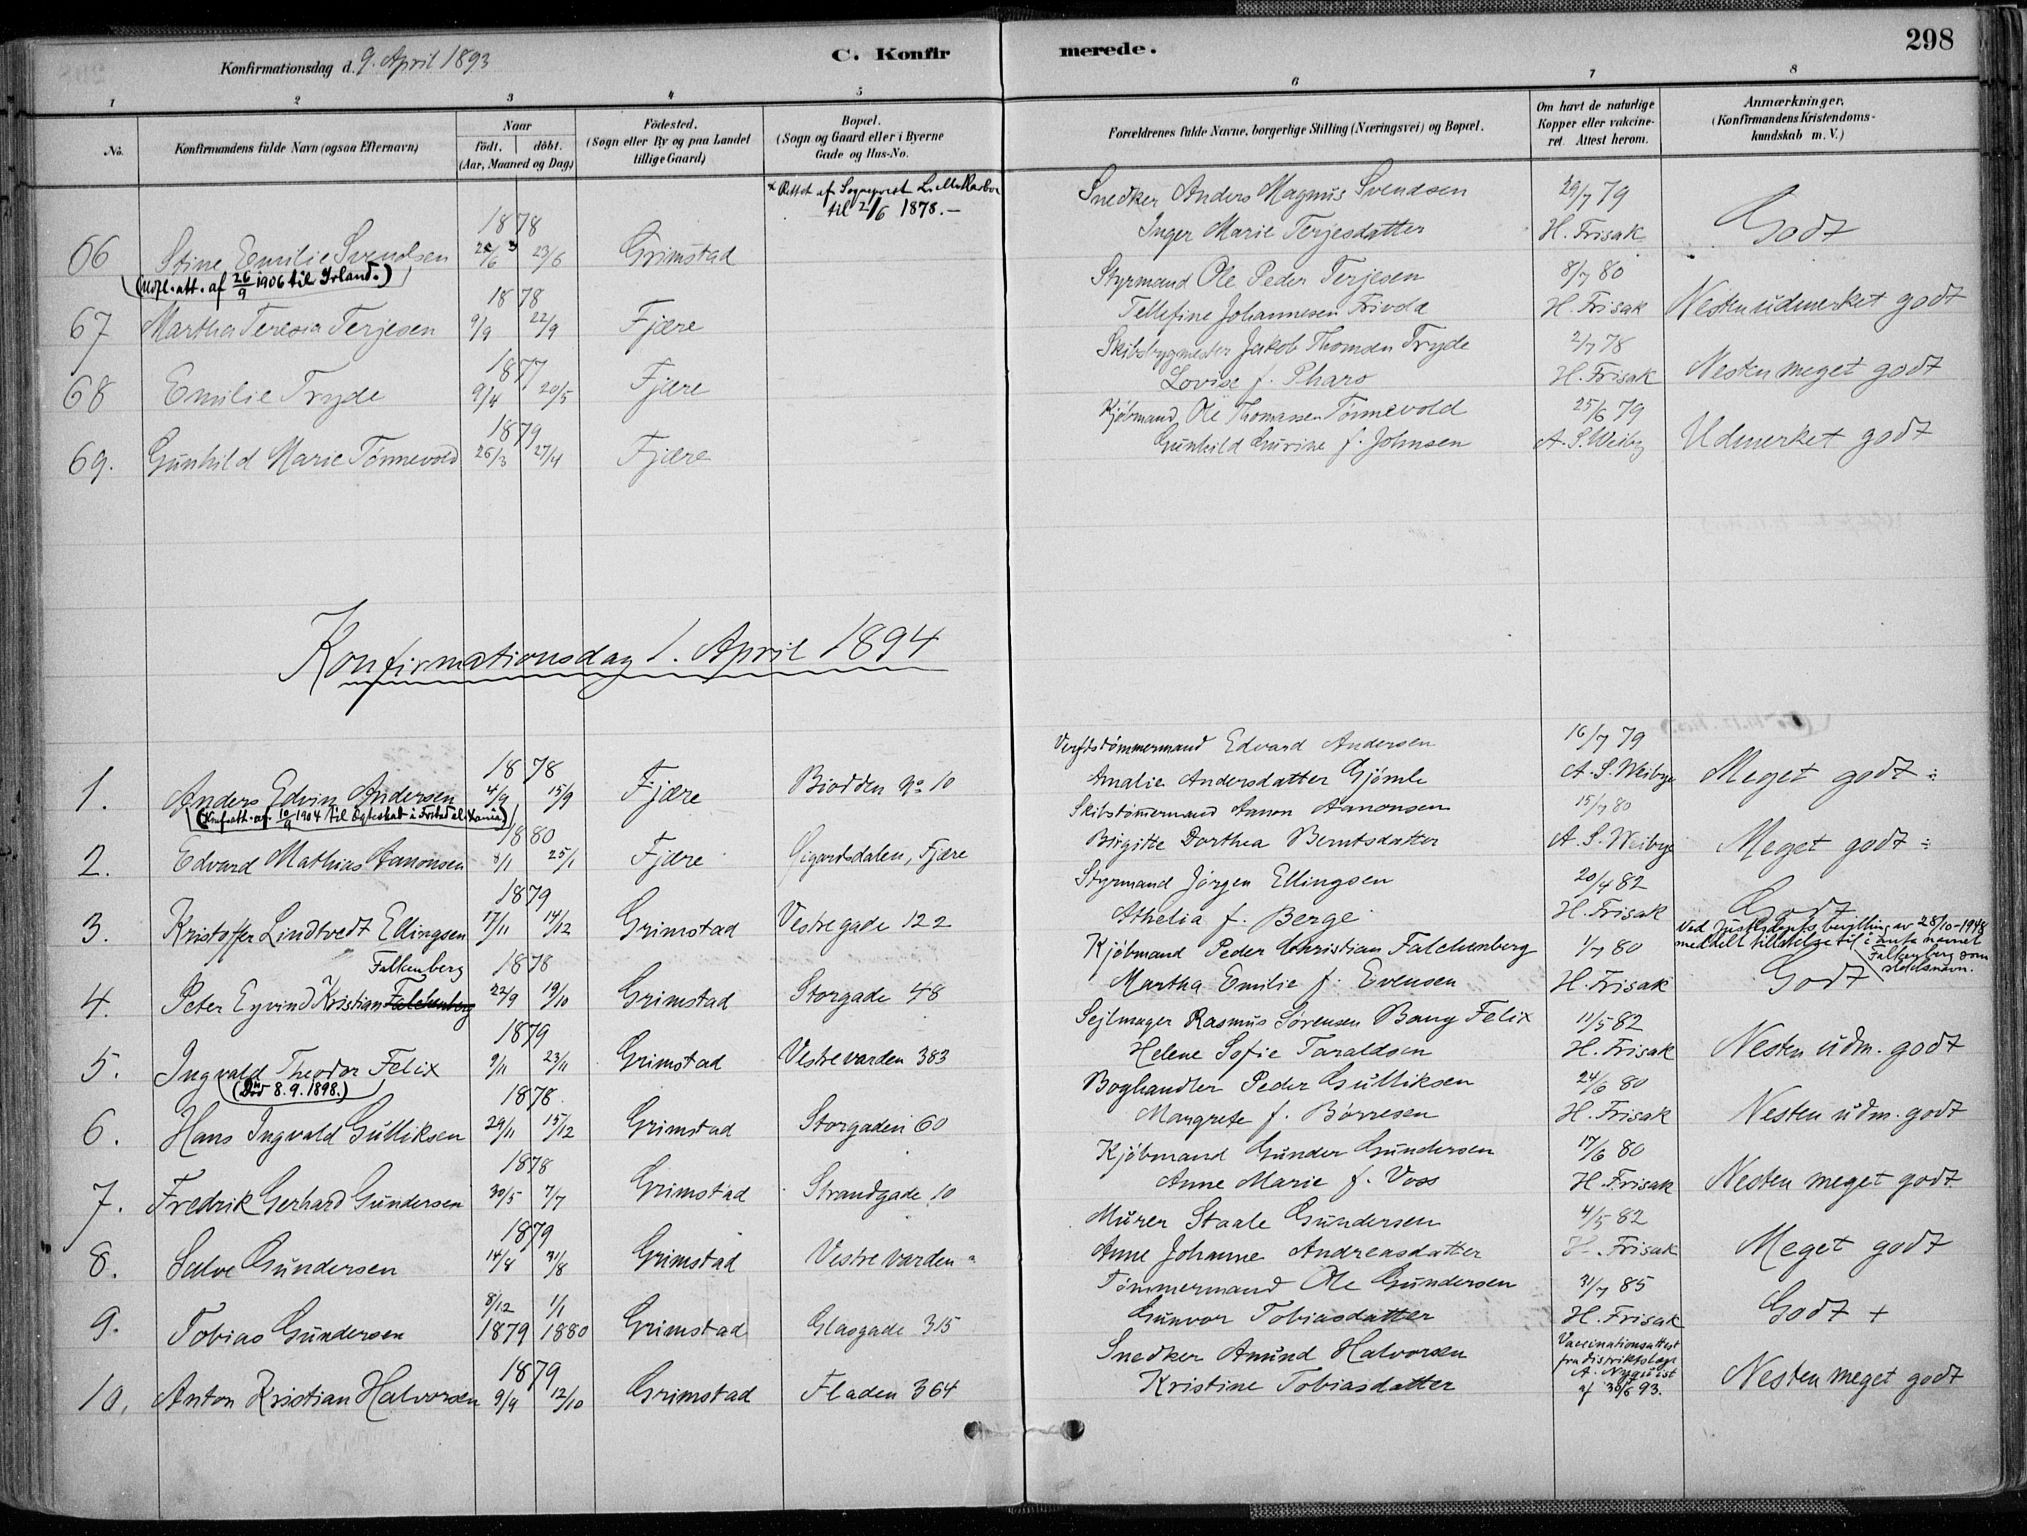 298
Konfirmationsdag d. 9. April 1893
C. Konfirmerede.
1 2 3 4 5 6 7 8
No. Konfirmandens fulde Navn (ogsaa Efternavn) Naar født. døbt. (Aar, Maaned og Dag) Fødested. (Sogn eller By og paa Landet tillige Gaard) Bopæl. (Sogn og Gaard eller i Byerne Gade og Hus-No. Forældrenes fulde Navne, borgerlige Stilling (Næringsvei) og Bopæl. Om havt de naturlige Kopper eller vakcineret. Attest herom. Anmærkninger. (Konfirmandens Kristendomskundskab m. V.)
x Rettet af Sogneprest
til 2/6 1878. —
Snedker Anders Magnus Svendsen 29/7 79
1878 Inger Marie Terjesdatter H. Frisak Godt
66 Stine Emilie Svendsen 23/6 Grimstad
(Udfl. att. af 26/9 1906 til Irland.)
Styrmand Ole Peder Terjesen 8/7 80
1878 Tellefine Johannesen Frivold H. Frisak Nesten udmerket godt
67 Martha Teresia Terjesen 9/9 22/9 Fjære
Skibsbygmester Jakob Thomsen Tryde 2/7 78
1877 Lovise f. Pharo H. Frisak Nesten meget godt
68 Emilie Tryde 9/4 20/5 Fjære
Kjøbmand Ole Thomassen Tønnevold 25/6 79
1879 Gunhild Gurine f. Johnsen A. S. Weiby Udmerket godt
69. Gunhild Marie Tønnevold 26/3 27/4 Fjære
Konfirmationsdag 1. April 1894
Verftstømmermand Edvard Andersen 16/7 79
1878 Amalie Andersdatter Gjømle A. S. Weibye Meget godt ÷
1. Anders Edvin Andersen 4/9 15/9 Fjære Biodden No 10
(Konf. att. af 10/9 1904 til Egteskab i Kania)
Skibstømmermand Aanon Aanonsen 15/7 80
1880 Birgitte Dorthea Berntsdatter A. S. Weibye Meget godt ÷
2. Edvard Mathias Aanonsen 4/1 25/1 Fjære Fjære
Styrmand Jørgen Ellingsen 20/4 82
1879 Athelia f. Berge H. Frisak Godt
3. Kristoffer Lindtvedt Ellingsen 17/11 14/12 Grimstad Vestregade 122
Ved Justisdepts bevilling av 28/10-1948 meddelt tillatelse til å anta navnet Falkenberg som slektsnavn.
Kjøbmand Peder Christian Falchenberg 1/7 80
Falkenberg 1878 Martha Emilie f. Evensen H. Frisak Godt
4. Peter Eyvind Kristian Falchenberg 22/9 19/10 Grimstad Storgade 48
Sejlmager Rasmus Sørensen Bang Felix 11/5 82
1879 Helene Sofie Taraldsen H. Frisak Nesten udm. godt
5. Ingvald Theodor Felix 9/11 23/11 Grimstad Vestrevarden 383
(Død 8.9.1898.)
Boghandler Peder Gulliksen 24/6 80
1878. Margrete f. Børresen H. Frisak Nesten udm. godt
6. Hans Ingvald Gulliksen 29/11 15/12 Grimstad Storgaden 60
Kjøbmand Gunder Gundersen 17/6 80
1878 Anne Marie f. Voss H. Frisak Nesten meget godt
7. Fredrik Gerhard Gundersen 30/5 7/7 Grimstad Strandgade 10
Murer Staale Gundersen 4/5 82
1879 Anne Johanne Andreasdatter H. Frisak Meget godt
8. Salve Gundersen 14/8 31/8 Grimstad Vestrevarden
Tømmermand Ole Gundersen 31/7 85
8/12 1/1 Gunvor Tobiasdatter H. Frisak Godt +
9. Tobias Gundersen 1879 1880 Grimstad Glasgade 315
Snedker Amund Halvorsen Vaccinationsattest fra distriktslæge A. Nyquist af 30/6 93.
1879 Kristine Tobiasdatter Nesten meget godt
10. Anton Kristian Halvorsen 9/9 12/10 Grimstad Fladen 364